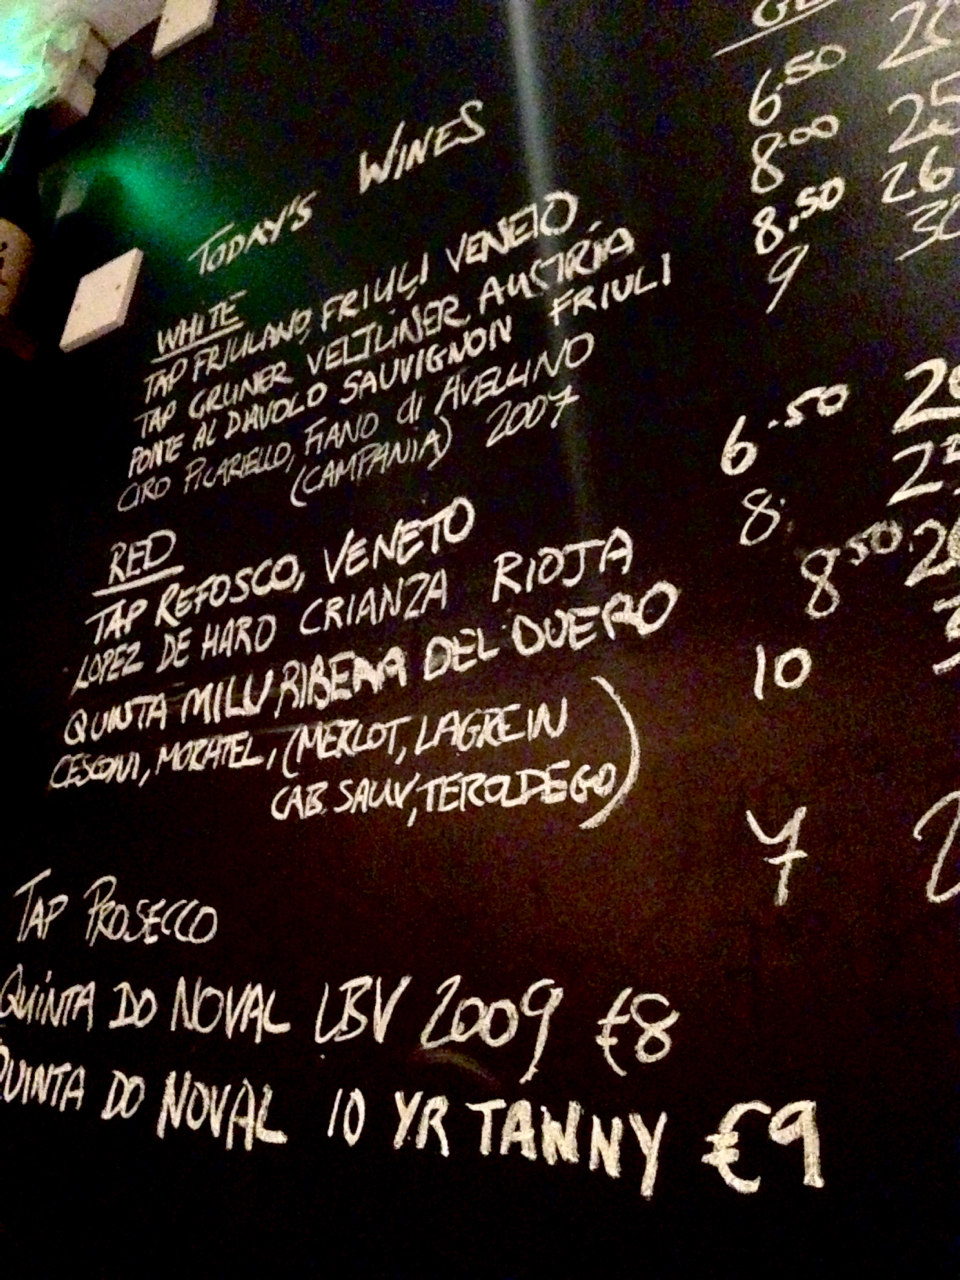 TODAY'S WINES
WHITE
TAP FRIULANO, FRIULI VENETO 6.50
TAP GRUNER VELTLINER, AUSTRIA 8.00 25
PONTE AL DIAVOLO SAUVIGNON FRIULI 8.50 26
CIRO PICARIELLO, FIANO di AVELLINO 9
(CAMPANIA) 2007
RED
TAP REFOSCO, VENETO 6.50
LOPEZ DE HARO CRIANZA RIOJA 8
QUINTA MILU RIBERA DEL DUERO 8.50
CESCONI, MORATEL, (MERLOT, LAGREIN 10
CAB. SAUV, TEROLDEGO)
TAP PROSECCO 7
QUINTA DO NOVAL LBV 2009 €8
QUINTA DO NOVAL 10 YR TANNY €9